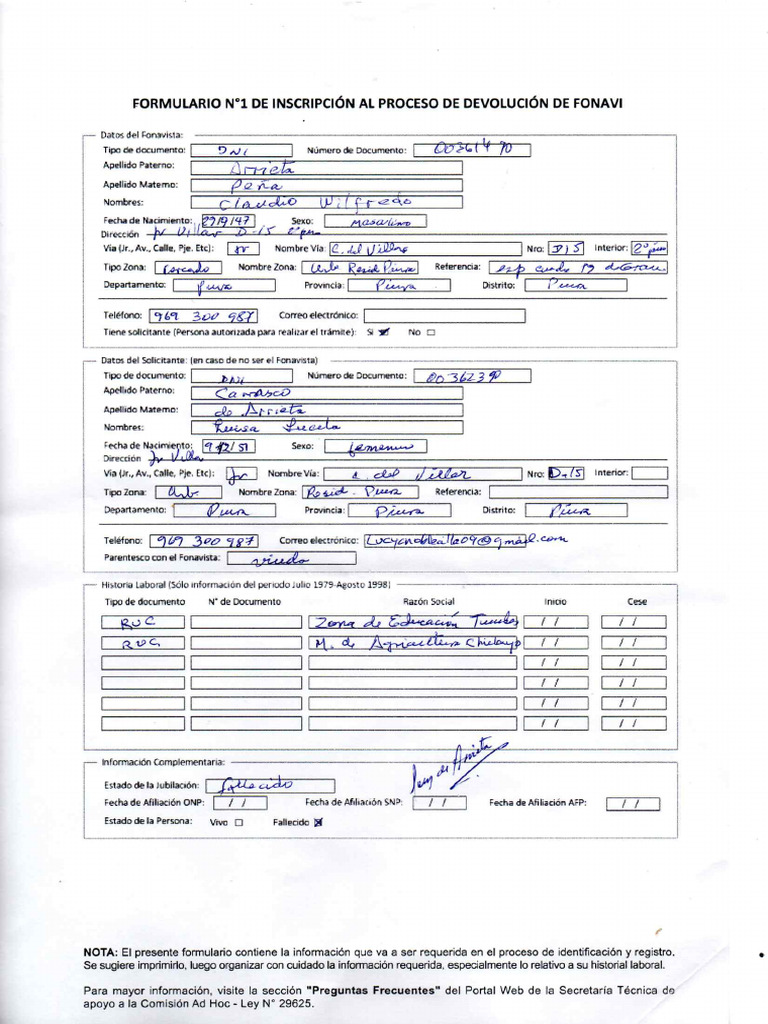 FORMULARIO N°1 DE INSCRIPCIÓN AL PROCESO DE DEVOLUCIÓN DE FONAVI
Datos del Fonavista:
Tipo de documento: DNI Número de Documento: 00361490
Apellido Paterno: Arrieta
Apellido Materno: Peña
Nombres: Claudio Wilfredo
Fecha de Nacimiento: 27/9/47 Sexo: Masculino
Dirección Jr Villar D-15 2º piso
Via (Jr., Av., Calle, Pje. Etc): Jr Nombre Vía: C. del Villar Nro: D15 Interior: 2º piso
Tipo Zona: Cercado Nombre Zona: Urb Resid Piura Referencia: esp cuadra 19 de Grau
Departamento: Piura Provincia: Piura Distrito: Piura
Teléfono: 969 300 987 Correo electrónico:
Tiene solicitante (Persona autorizada para realizar el trámite): Si No
Datos del Solicitante: (en caso de no ser el Fonavista)
Tipo de documento: DNI Número de Documento: 00362390
Apellido Paterno: Carrasco
Apellido Materno: de Arrieta
Nombres: Luisa Lucela
Fecha de Nacimiento: 9/12/51 Sexo: femenino
Dirección Jr Villar
Via (Jr., Av., Calle, Pje. Etc): Jr Nombre Vía: C. del Villar Nro: D-15 Interior:
Tipo Zona: Urb. Nombre Zona: Resid. Piura Referencia:
Departamento: Piura Provincia: Piura Distrito: Piura
Teléfono: 969 300 987 Correo electrónico: @gmail.com
Parentesco con el Fonavista: viuda
Historia Laboral (Sólo información del periodo Julio 1979-Agosto 1998)
Tipo de documento N° de Documento Razón Social Inicio Cese
RUC Zona de Educación Tumbes / / / /
RUC M. de Agricultura Chiclayo / / / /
/ / / /
/ / / /
/ / / /
/ / / /
Información Complementaria:
de Arrieta
Estado de la Jubilación: fallecido
Fecha de Afiliación ONP: / / Fecha de Afiliación SNP: / / Fecha de Afiliación AFP: / /
Estado de la Persona: Vivo Fallecido
NOTA: El presente formulario contiene la información que va a ser requerida en el proceso de identificación y registro.
Se sugiere imprimirlo, luego organizar con cuidado la información requerida, especialmente lo relativo a su historial laboral.
Para mayor información, visite la sección "Preguntas Frecuentes" del Portal Web de la Secretaría Técnica de
apoyo a la Comisión Ad Hoc - Ley N° 29625.